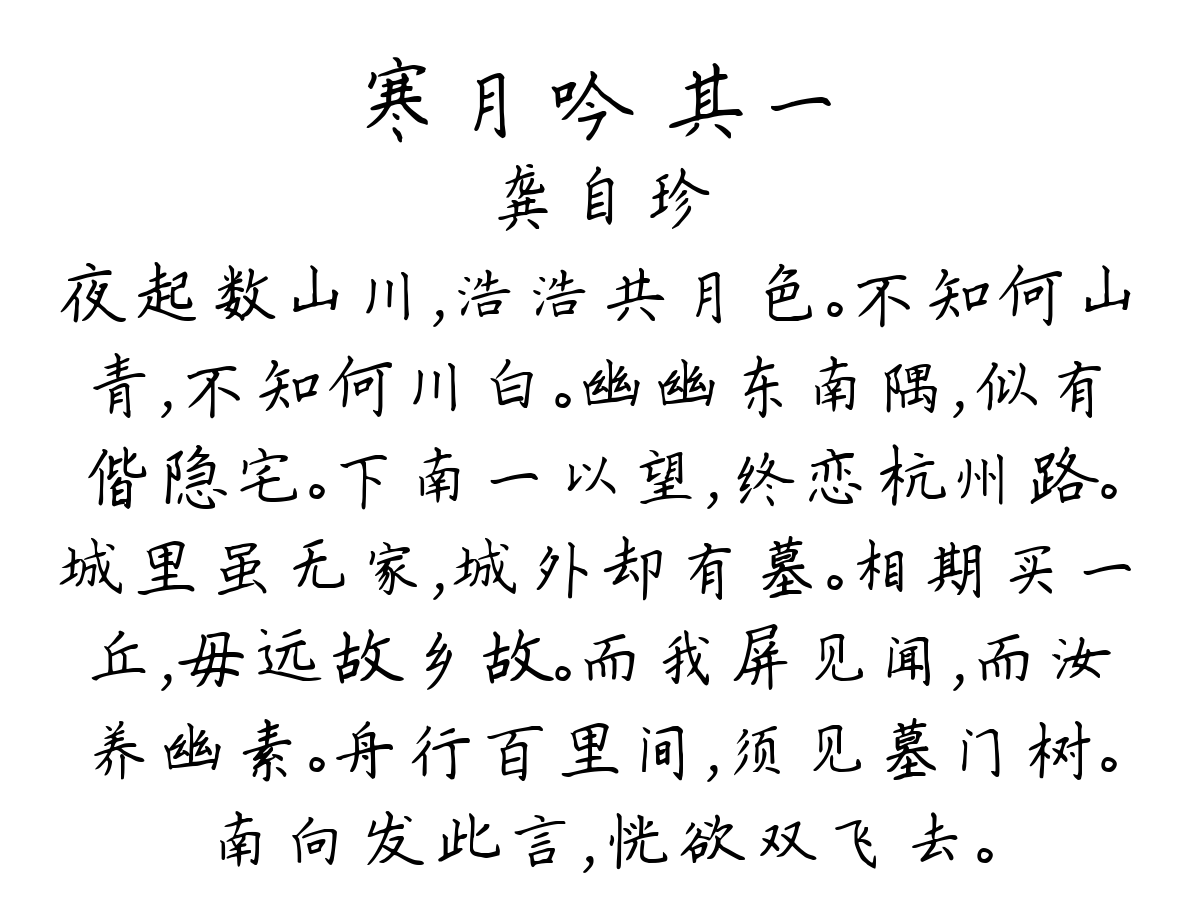 寒月吟 其一
龚自珍
夜起数山川,浩浩共月色。不知何山
青,不知何川白。幽幽东南隅,似有
偕隐宅。下南一以望,终恋杭州路。
城里虽无家,城外却有墓。相期买一
丘,毋远故乡故。而我屏见闻,而汝
养幽素。舟行百里间,须见墓门树。
南向发此言,恍欲双飞去。